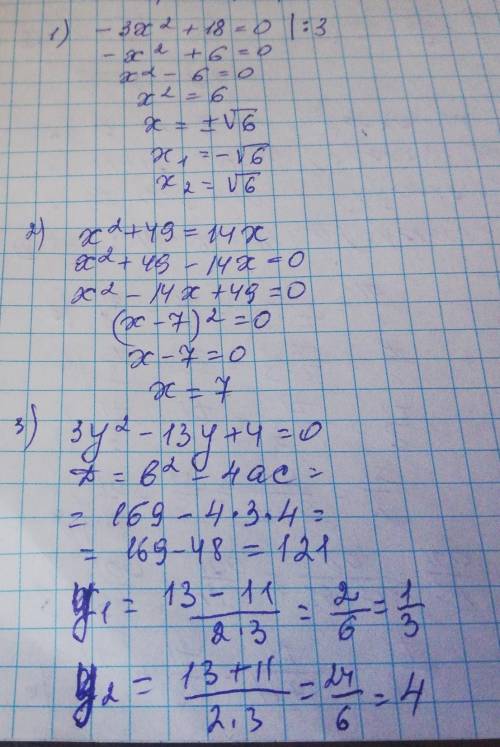 1) - 3x² + 18 = 0 | : 3
- x² + 6 = 0
x² - 6 = 0
x² = 6
x = ±√6
x₁ = -√6
x₂ = √6
2) x² + 49 = 14x
x² + 49 - 14x = 0
x² - 14x + 49 = 0
(x - 7)² = 0
x - 7 = 0
x = 7
3) 3y² - 13y + 4 = 0
D = b² - 4ac =
= 169 - 4·3·4 =
= 169 - 48 = 121
y₁ = (13 - 11)/(2·3) = 2/6 = 1/3
y₂ = (13 + 11)/(2·3) = 24/6 = 4